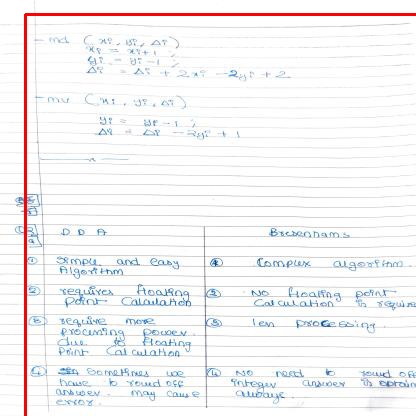 - md ( xi, yi, Δi )
xi = xi+1 ;
yi = yi -1 ;
Δi = Δi + 2xi - 2yi + 2
- mv ( xi, yi, Δi )
yi = yi -1 ;
Δi = Δi - 2yi + 1
x
D D A
Bresenhams
① Simple and easy
Algorithm
① Complex algorithm.
② requires floating
Point Calculation
② No floating point
Calculation is require
③ require more
processing power
due to floating
Point Calculation
③ less processing.
④ Sometimes we
have to round off
answer. may cause
error.
④ No need to round off
integer answer is obtain
always.